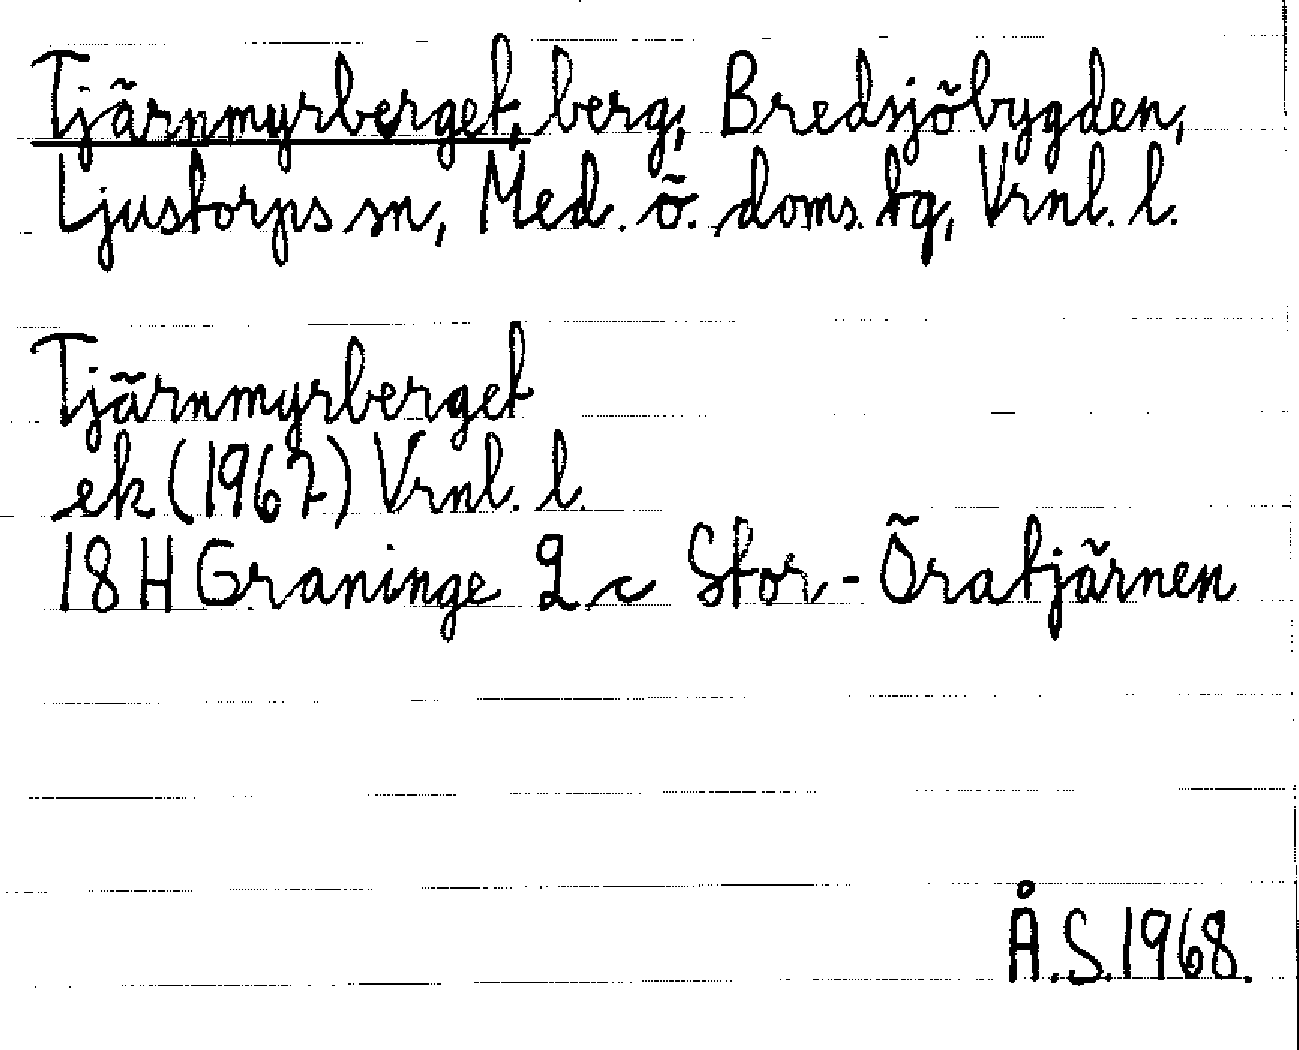 Tjärnmyrberget, berg, Bredsjöbygden,
Ljustorps sn, Med. ö. doms. tg, Vrnl. l.
Tjärnmyrberget
ek (1967) Vrnl. l.
18 H Graninge 2 c Stor-Öratjärnen
Å.S. 1968.